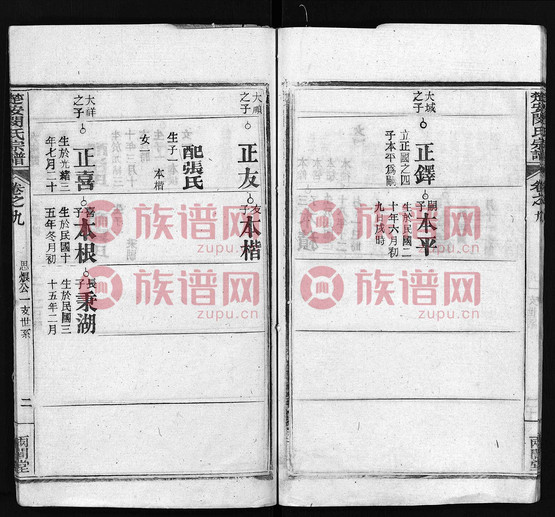 大城
之子
正鐸
立正國之四
子本平為嗣
嗣
子
本平
生於民國二
十年六月初
九日戌時
大順
之子
正友
配張氏
生子一
本楷
女一
友
子
本楷
大祥
之子
正喜
生於光緒三
年七月二十
喜
子
本根
生於民國十
五年冬月初
長
子
秉湖
生於民國三
十五年二月
氏宗譜
卷之九
思恨公一支世系
二
族谱网
zupu.cn
族谱网
zupu.cn
族谱网
zupu.cn
族谱网
zupu.cn